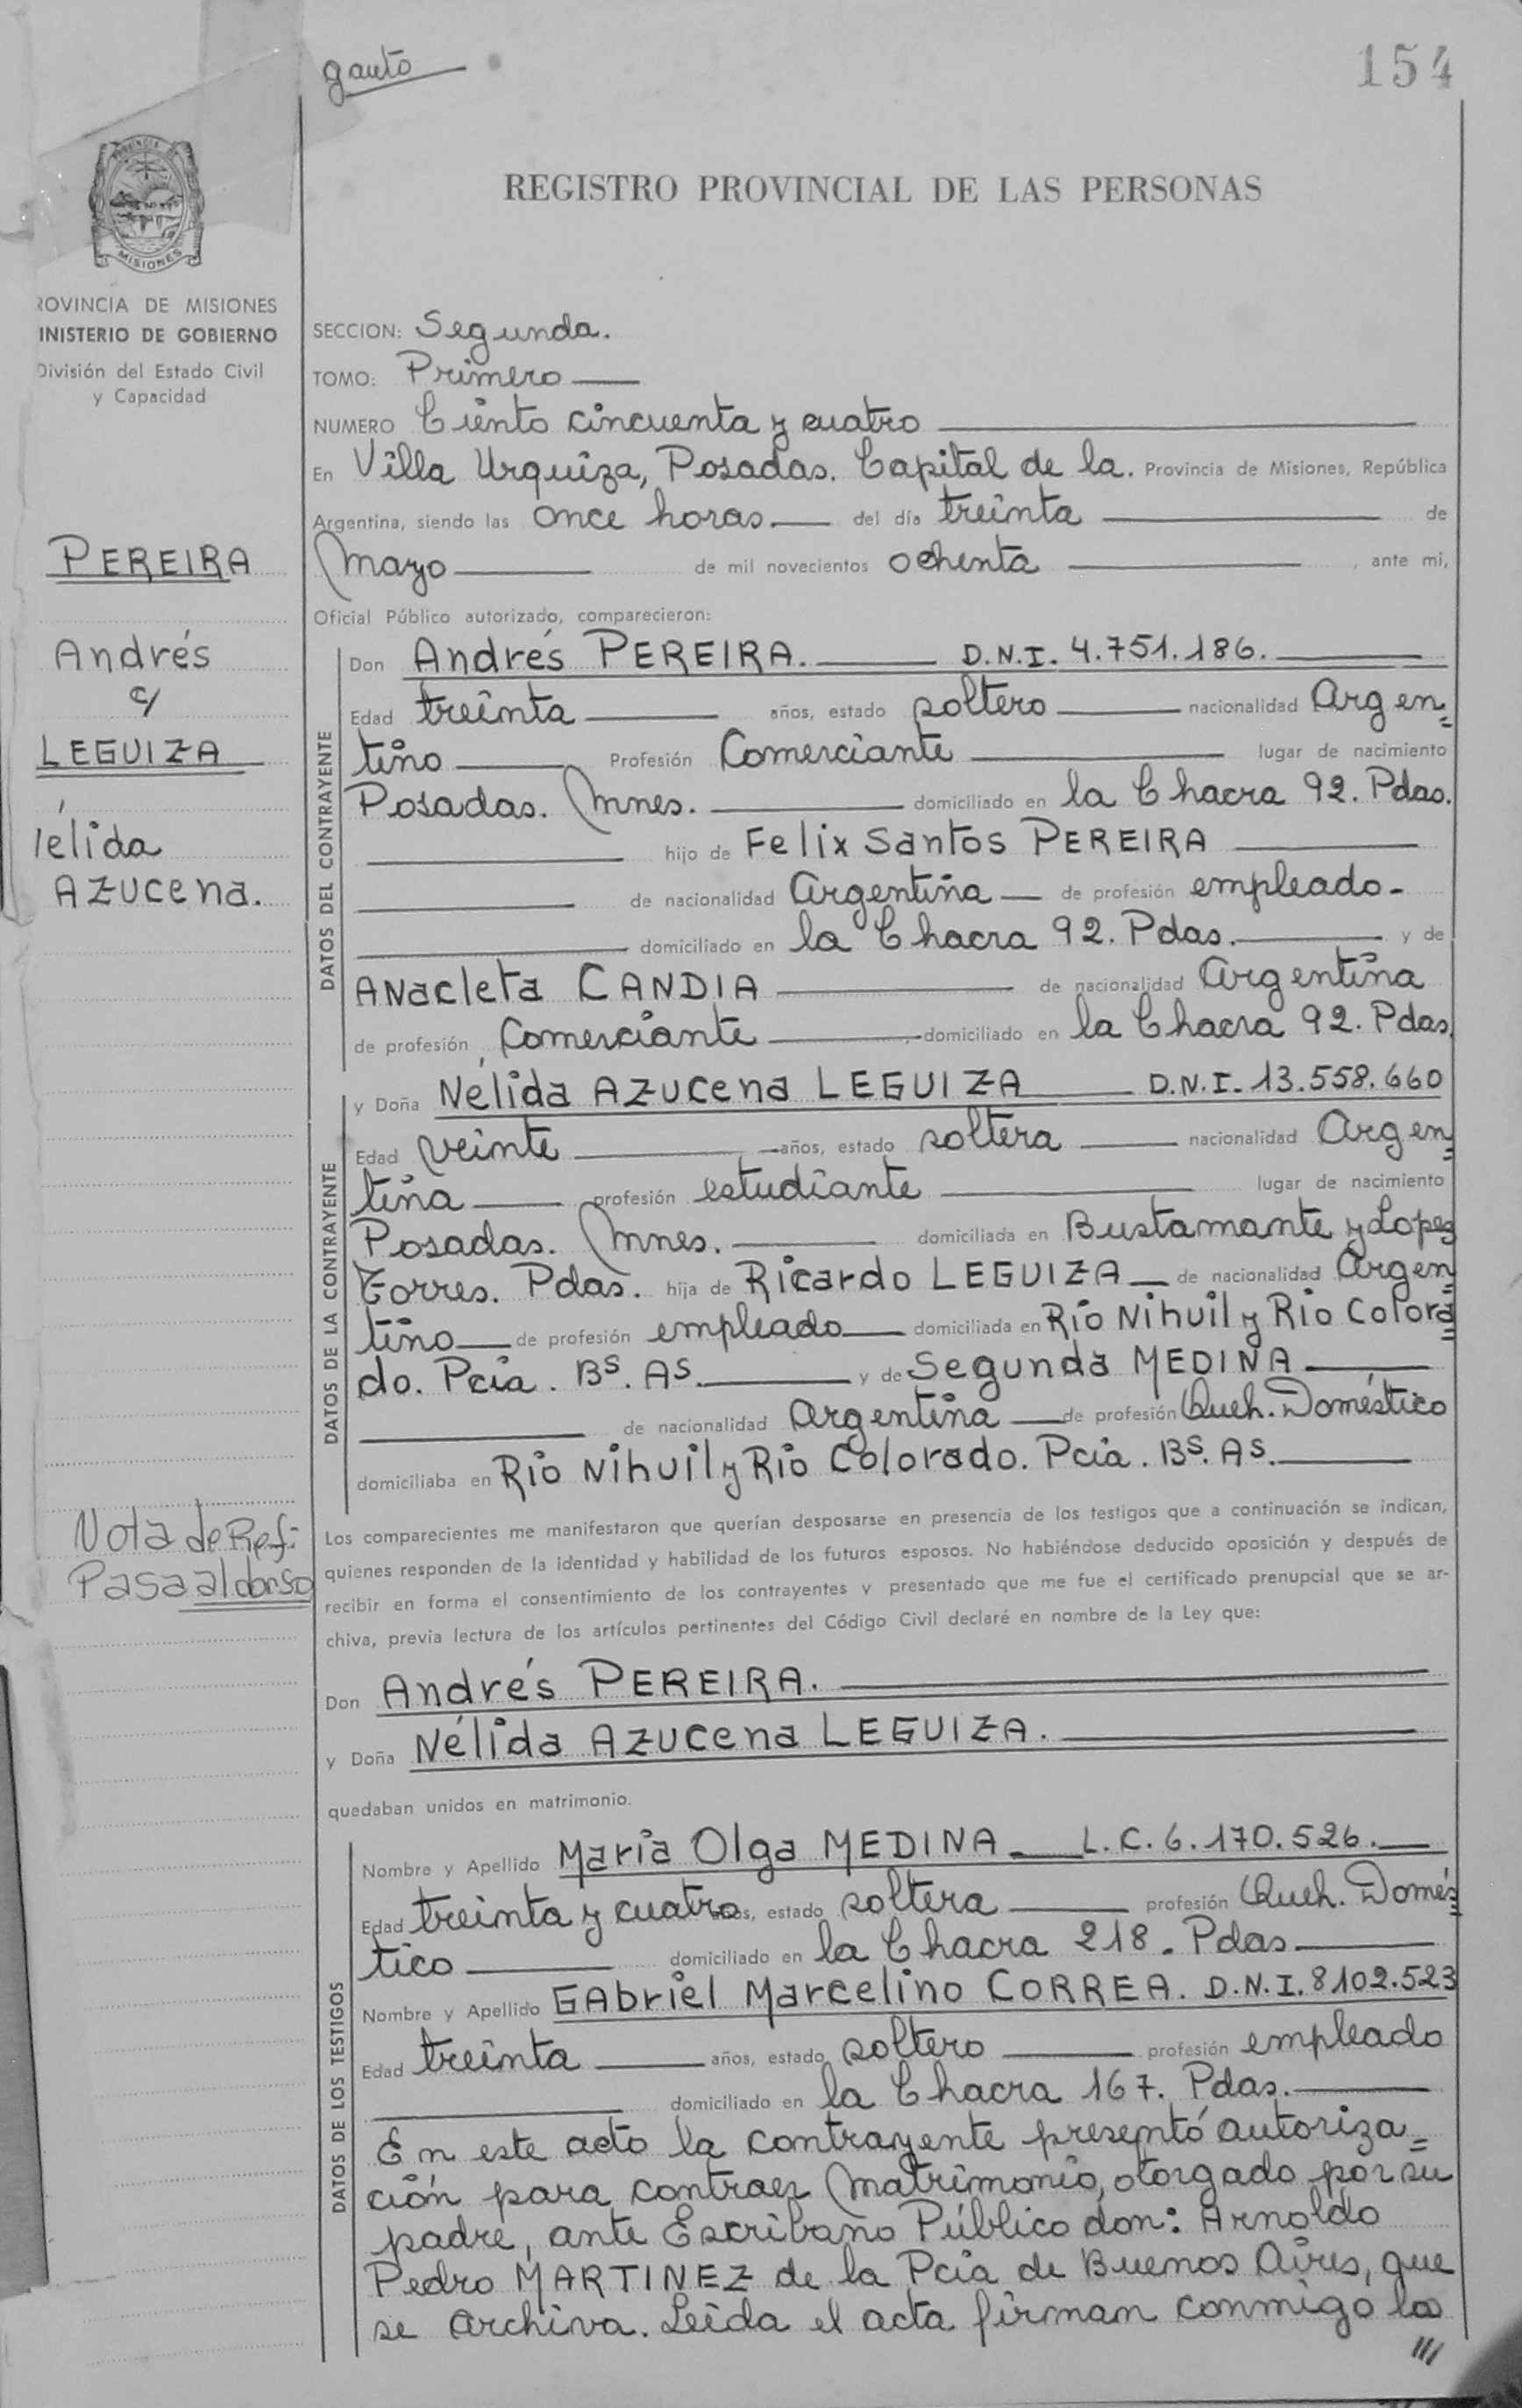 gauto
154
PROVINCIA DE
MISIONES
REGISTRO PROVINCIAL DE LAS PERSONAS
ROVINCIA DE MISIONES
INISTERIO DE GOBIERNO
División del Estado Civil
y Capacidad
PEREIRA
Andrés
c/
LEGUIZA
Nélida
AZUCena.
Nota de Ref:
Pasa al dorso
SECCION: Segunda.
TOMO: Primero
NUMERO Ciento cincuenta y cuatro
En Villa Urquiza, Posadas. Capital de la. Provincia de Misiones, República
Argentina, siendo las once horas del día treinta de
Mayo de mil novecientos ochenta, ante mi,
Oficial Público autorizado, comparecieron:
DATOS DEL CONTRAYENTE
Don Andrés PEREIRA. D.N.I. 4.751.186.
Edad treinta años, estado soltero nacionalidad Argen=
tino Profesión Comerciante lugar de nacimiento
Posadas. Mnes. domiciliado en la Chacra 92. Pdas.
hijo de Felix Santos PEREIRA
de nacionalidad Argentina de profesión empleado-
domiciliado en la Chacra 92. Pdas. y de
ANacleta CANDIA de nacionalidad Argentina
de profesión Comerciante domiciliado en la Chacra 92. Pdas.
DATOS DE LA CONTRAYENTE
y Doña Nélida AZUCena LEGUIZA D.N.I. 13.558.660
Edad veinte años, estado soltera nacionalidad Argen=
tina profesión estudiante lugar de nacimiento
Posadas. Mnes. domiciliada en Bustamante y Lopez
Torres. Pdas. hija de Ricardo LEGUIZA de nacionalidad Argen=
tino de profesión empleado domiciliada en Río Nihuil y Río Colora=
do. Pcia. Bs. As. y de Segunda MEDINA
de nacionalidad Argentina de profesión Queh. Doméstico
domiciliaba en Río Nihuil y Río Colorado. Pcia. Bs. As.
Los comparecientes me manifestaron que querían desposarse en presencia de los testigos que a continuación se indican,
quienes responden de la identidad y habilidad de los futuros esposos. No habiéndose deducido oposición y después de
recibir en forma el consentimiento de los contrayentes y presentado que me fue el certificado prenupcial que se ar-
chiva, previa lectura de los artículos pertinentes del Código Civil declaré en nombre de la Ley que:
Don Andrés PEREIRA.
y Doña Nélida AZUCena LEGUIZA.
quedaban unidos en matrimonio.
DATOS DE LOS TESTIGOS
Nombre y Apellido María Olga MEDINA. L.C. 6.170.526.
Edad treinta y cuatro años, estado soltera profesión Queh. Domés=
tico domiciliado en la Chacra 218. Pdas
Nombre y Apellido GAbriel Marcelino CORREA. D.N.I. 8102.523
Edad treinta años, estado soltero profesión empleado
domiciliado en la Chacra 167. Pdas.
En este acto la contrayente presentó autoriza=
ción para contraer Matrimonio, otorgado por su
padre, ante Escribano Público don: Arnoldo
Pedro MARTINEZ de la Pcia de Buenos Aires, que
se archiva. Leída el acta firman conmigo los
///